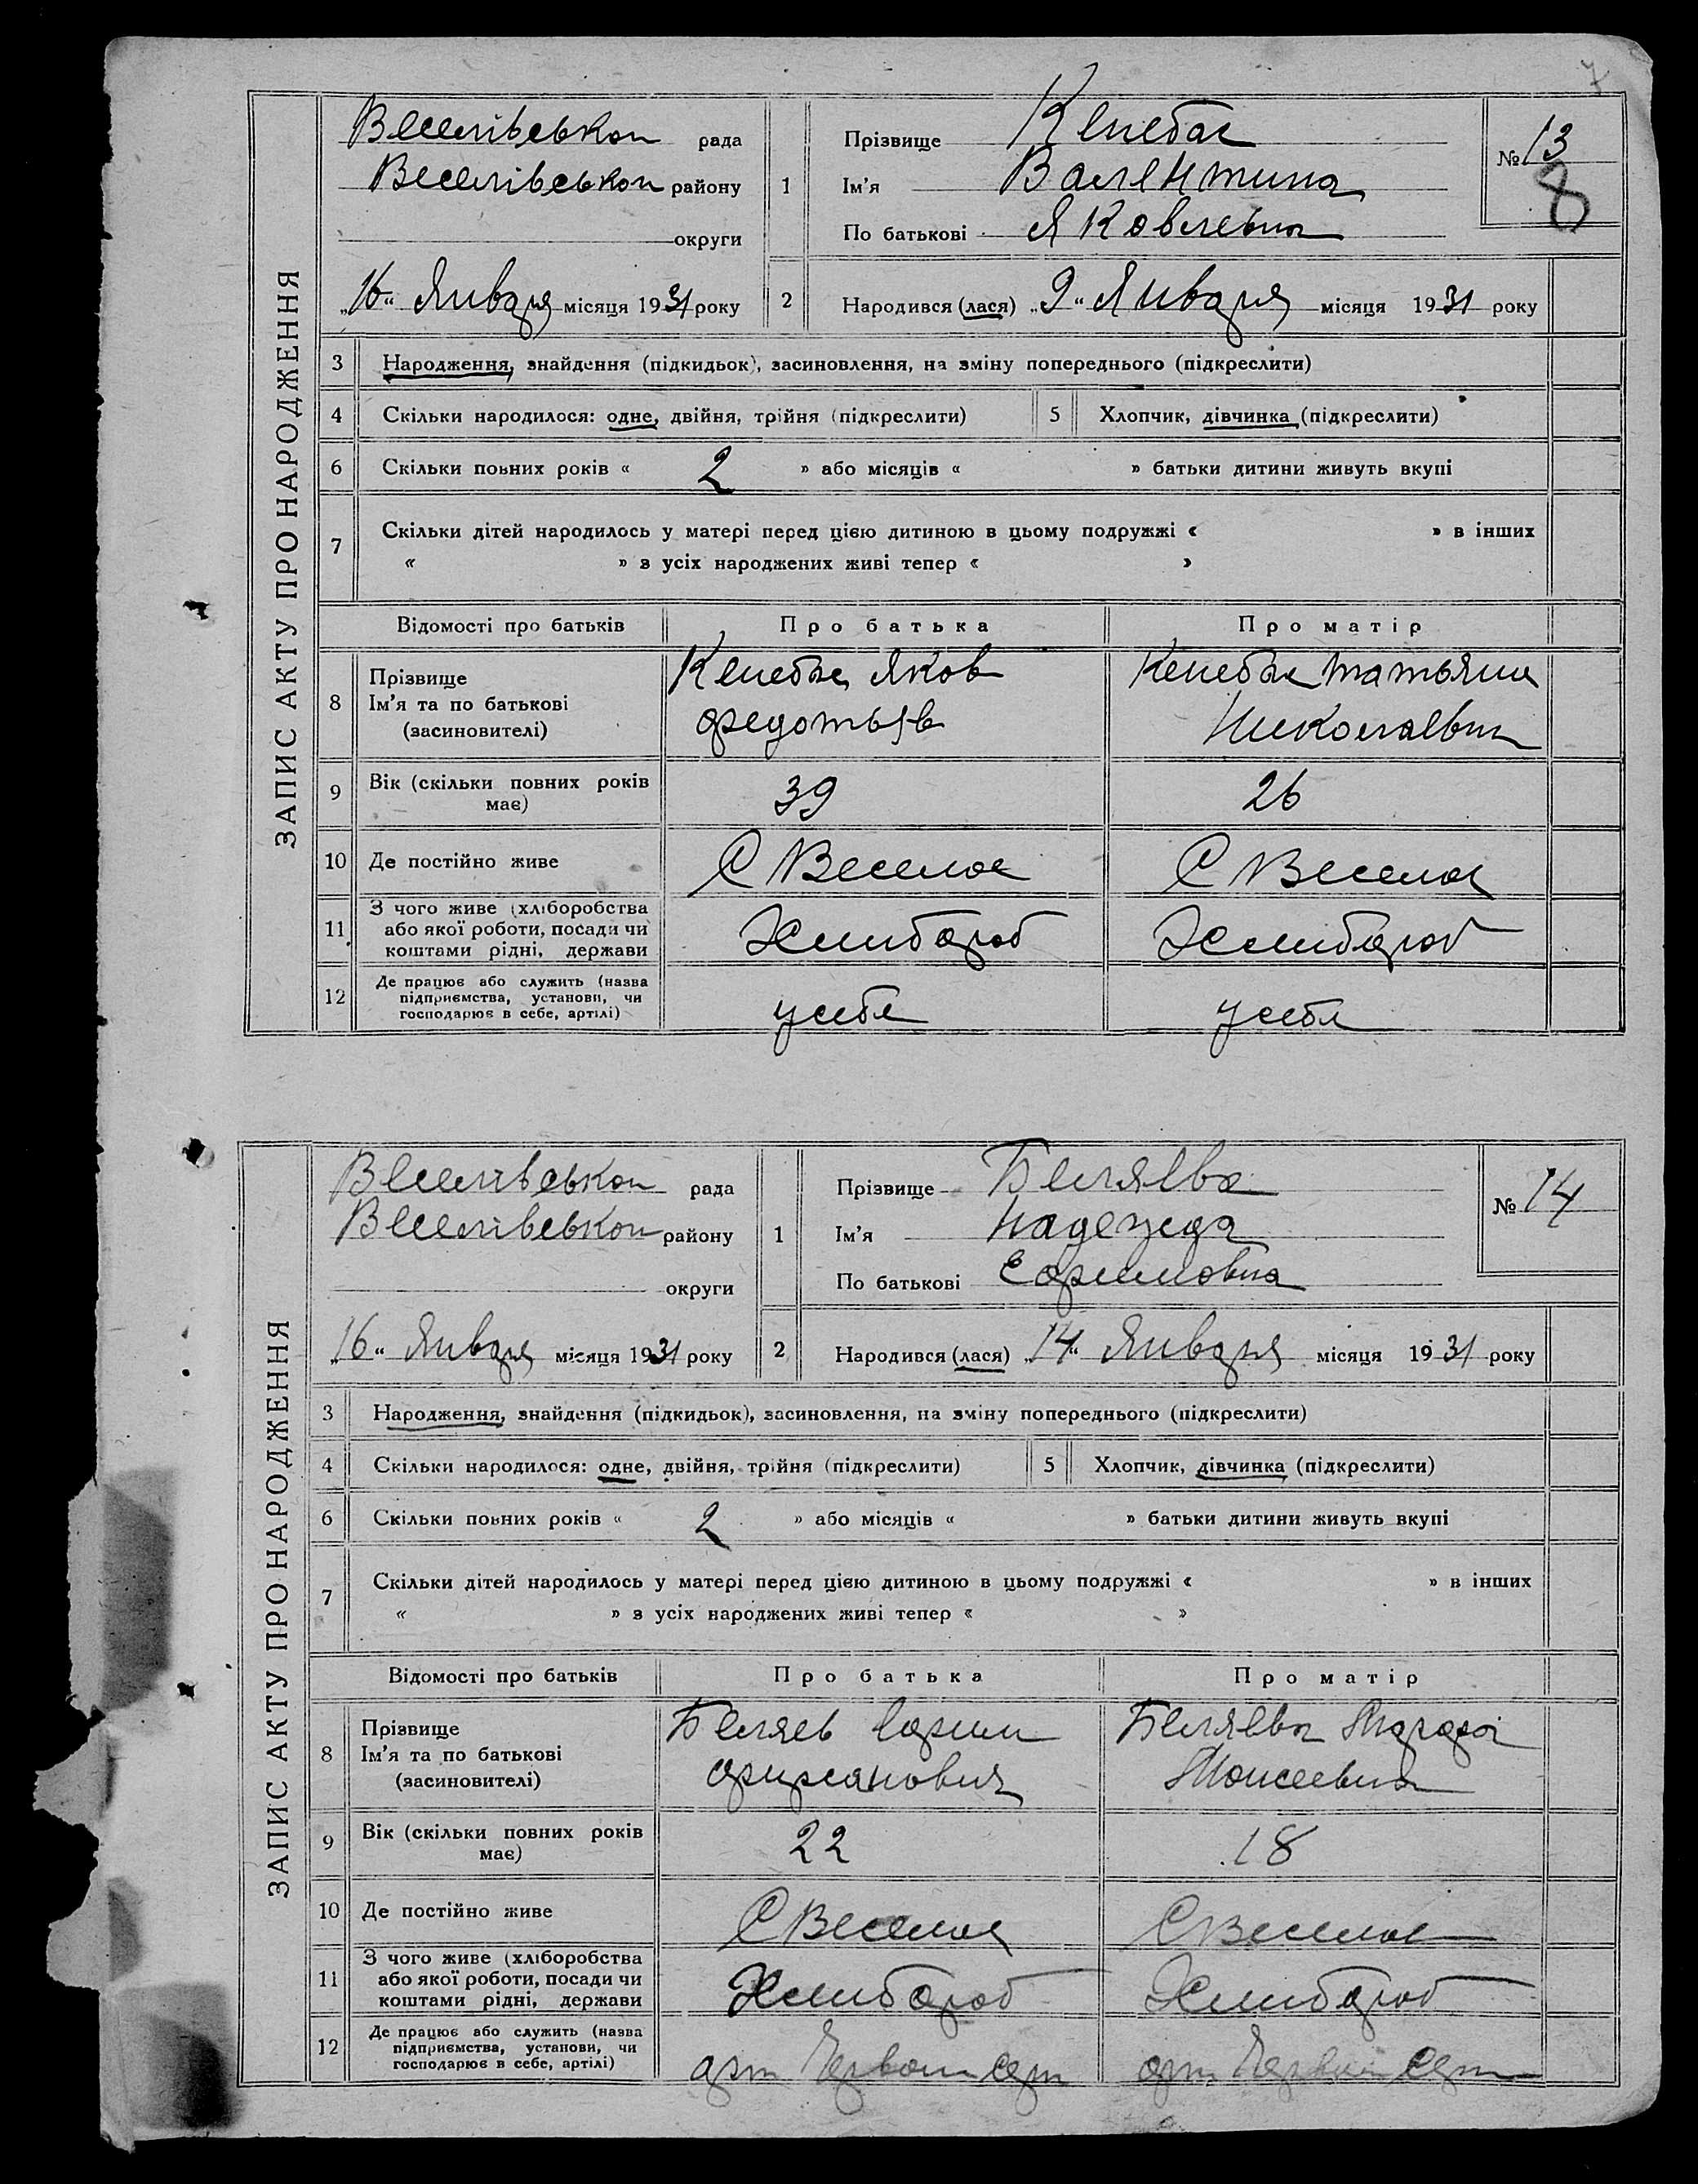 7
ЗАПИС АКТУ ПРО НАРОДЖЕННЯ
Веселівськои рада
Веселівськои району
округи
„16“ Января місяця 1931 року
1
Прізвище Кенебас
Ім'я Валентина
По батькові Яковлевна
№ 13
8
2 Народився (лася) „9“ Января місяця 1931 року
3 Народження, знайдення (підкидьок), засиновлення, на зміну попереднього (підкреслити)
4 Скільки народилося: одне, двійня, трійня (підкреслити) 5 Хлопчик, дівчинка (підкреслити)
6 Скільки повних років « 2 » або місяців « » батьки дитини живуть вкупі
7 Скільки дітей народилось у матері перед цією дитиною в цьому подружжі « » в інших
« » з усіх народжених живі тепер « »
Відомості про батьків Про батька Про матір
8 Прізвище
Ім'я та по батькові
(засиновителі)
Кенебас Яков
Кенебас Татьяна
Николаевна
9 Вік (скільки повних років
має)
39 26
10 Де постійно живе С Веселое С Веселое
11 З чого живе (хліборобства
або якої роботи, посади чи
коштами рідні, держави
Хлибороб Хлибороб
12 Де працює або служить (назва
підприємства, установи, чи
господарює в себе, артілі)
усебя усебя
ЗАПИС АКТУ ПРО НАРОДЖЕННЯ
Веселівськои рада
Веселівськои району
округи
„16“ Января місяця 1931 року
1
Прізвище Беляева
Ім'я Надежда
По батькові Ефимовна
№ 14
2 Народився (лася) „14“ Января місяця 1931 року
3 Народження, знайдення (підкидьок), засиновлення, на зміну попереднього (підкреслити)
4 Скільки народилося: одне, двійня, трійня (підкреслити) 5 Хлопчик, дівчинка (підкреслити)
6 Скільки повних років « 2 » або місяців « » батьки дитини живуть вкупі
7 Скільки дітей народилось у матері перед цією дитиною в цьому подружжі « » в інших
« » з усіх народжених живі тепер « »
Відомості про батьків Про батька Про матір
8 Прізвище
Ім'я та по батькові
(засиновителі)
Беляев Ефим
Беляева
Моисеевна
9 Вік (скільки повних років
має)
22 18
10 Де постійно живе С Веселое С Веселое
11 З чого живе (хліборобства
або якої роботи, посади чи
коштами рідні, держави
Хлибороб Хлибороб
12 Де працює або служить (назва
підприємства, установи, чи
господарює в себе, артілі)
арт арт